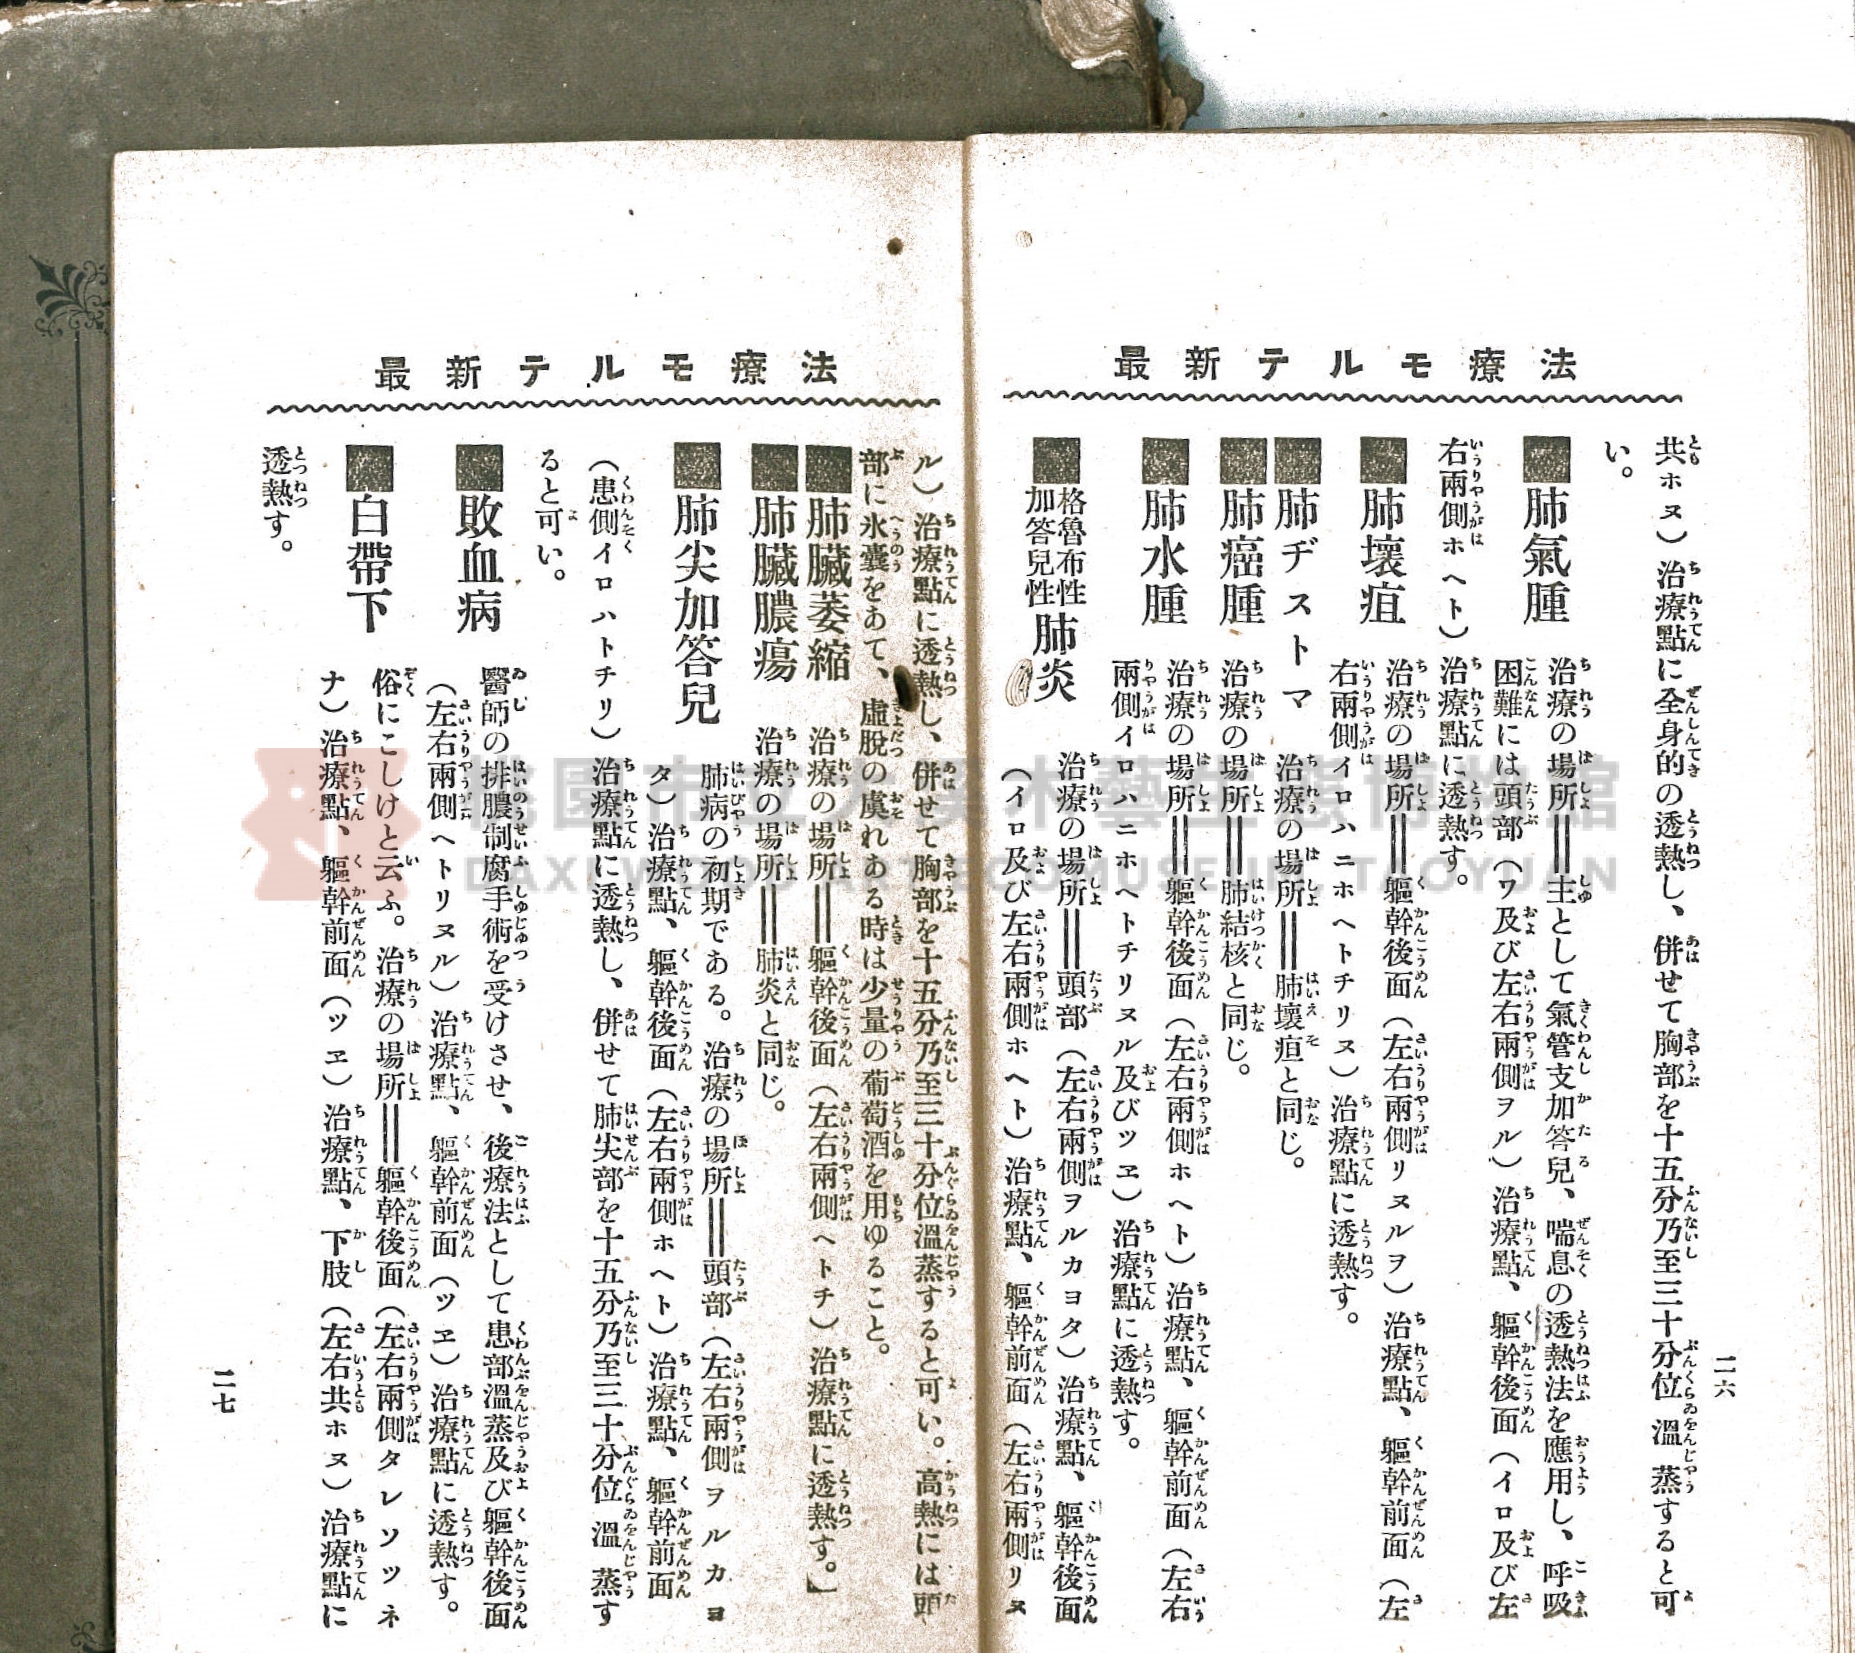 最新テルモ療法
二六
共ホヌ）治療點に全身的の透熱し、併せて胸部を十五分乃至三十分位溫蒸すると可
い。
肺氣腫 治療の場所＝主として氣管支加答兒、喘息の透熱法を應用し、呼吸
困難には頭部（ワ及び左右兩側ヲル）治療點、軀幹後面（イロ及び左
右兩側ホヘト）治療點に透熱す。
肺壞疽 治療の場所＝軀幹後面（左右兩側リヌルヲ）治療點、軀幹前面（左
右兩側イロハニホヘトチリヌ）治療點に透熱す。
肺ヂストマ 治療の場所＝肺壞疽と同じ。
肺癌腫 治療の場所＝肺結核と同じ。
肺水腫 治療の場所＝軀幹後面（左右兩側ホヘト）治療點、軀幹前面（左右
兩側イロハニホヘトチリヌル及びツヱ）治療點に透熱す。
格魯布性加答兒性肺炎 治療の場所＝頭部（左右兩側ヲルカヨタ）治療點、軀幹後面
（イロ及び左右兩側ホヘト）治療點、軀幹前面（左右兩側リヌ
最新テルモ療法
ル）治療點に透熱し、併せて胸部を十五分乃至三十分位溫蒸すると可い。高熱には頭
部に氷囊をあて、虛脫の虞れある時は少量の葡萄酒を用ゆること。
肺臟萎縮 治療の場所＝軀幹後面（左右兩側ヘトチ）治療點に透熱す。
肺臟膿瘍 治療の場所＝肺炎と同じ。
肺尖加答兒 肺病の初期である。治療の場所＝頭部（左右兩側ヲルカヨ
タ）治療點、軀幹後面（左右兩側ホヘト）治療點、軀幹前面
（患側イロハトチリ）治療點に透熱し、併せて肺尖部を十五分乃至三十分位溫蒸す
ると可い。
敗血病 醫師の排膿制腐手術を受けさせ、後療法として患部溫蒸及び軀幹後面
（左右兩側ヘトリヌル）治療點、軀幹前面（ツヱ）治療點に透熱す。
白帶下 俗にこしけと云ふ。治療の場所＝軀幹後面（左右兩側タレソツネ
ナ）治療點、軀幹前面（ツヱ）治療點、下肢（左右共ホヌ）治療點に
透熱す。
二七
桃園市立大溪木藝生態博物館
DAXI WOOD ART ECOMUSEUM, TAOYUAN